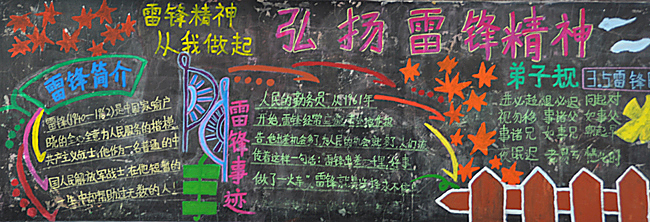 雷锋精神
从我做起
弘扬雷锋精神
雷锋简介
雷锋(1940-1962)是中国家喻户
晓的全心全意为人民服务的楷模
共产主义战士,他作为一名普通的中
国人民解放军战士,在他短暂的
一生中却帮助过无数的人!
雷锋事迹
人民的勤务员 从1961年
开始,雷锋经常
传着这样一句话:雷锋出差一千里,好事
做了一火车。雷锋
弟子规
3.5雷锋
进必趋 退必迟 问起对
视勿移 事诸父 如事父
事诸兄 如事兄 朝起早
夜眠迟